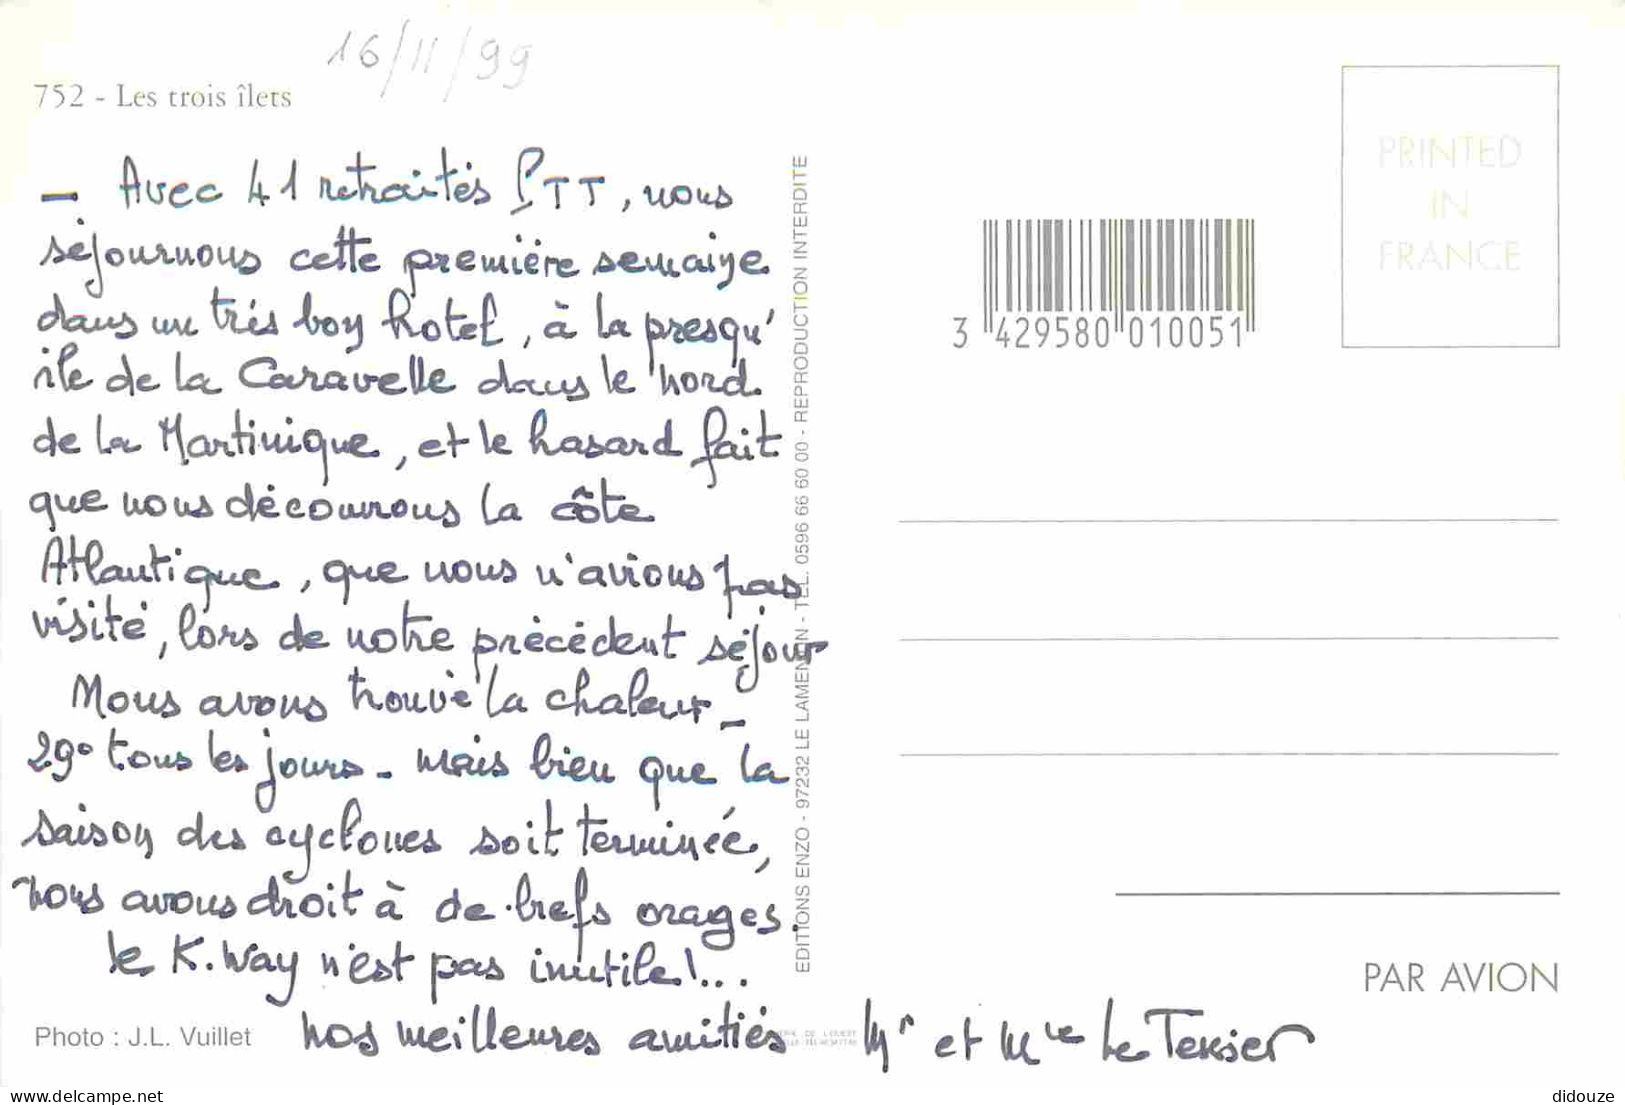 16/11/99
752 - Les trois îlets
PRINTED
IN
FRANCE
- Avec 41 retraités PTT, nous
séjournons cette première semaine
dans un très bon hotel, à la presqu'
île de la Caravelle dans le nord
de la Martinique, et le hasard fait
que nous découvrons la côte
Atlantique, que nous n'avions pas
visité, lors de notre précédent séjour
Nous avons trouvé la chaleur_
29° tous les jours - mais bien que la
saison des cyclones soit terminée,
nous avons droit à de brefs orages.
le K.Way n'est pas inutile!...
nos meilleures amitiés Mr et Me Le Tersier
EDITIONS ENZO - 97232 LE LAMENTIN - TEL. 0596 66 60 00 - REPRODUCTION INTERDITE
3 429580 010051
PAR AVION
Photo : J.L. Vuillet
delcampe.net
didouze